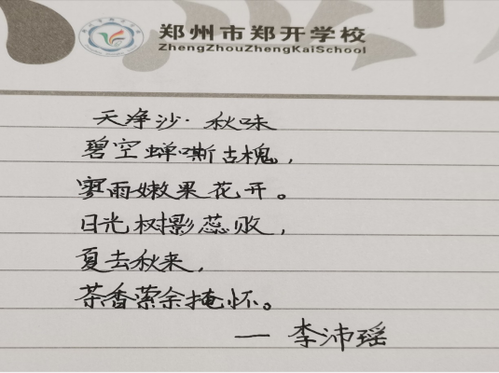 郑州市郑开学校
ZhengZhouZhengKaiSchool
天净沙·秋味
碧空蝉嘶古槐，
寥雨嫩果花开。
日光树影蕊败，
夏去秋来，
茶香萦余掩怀。
— 李沛瑶